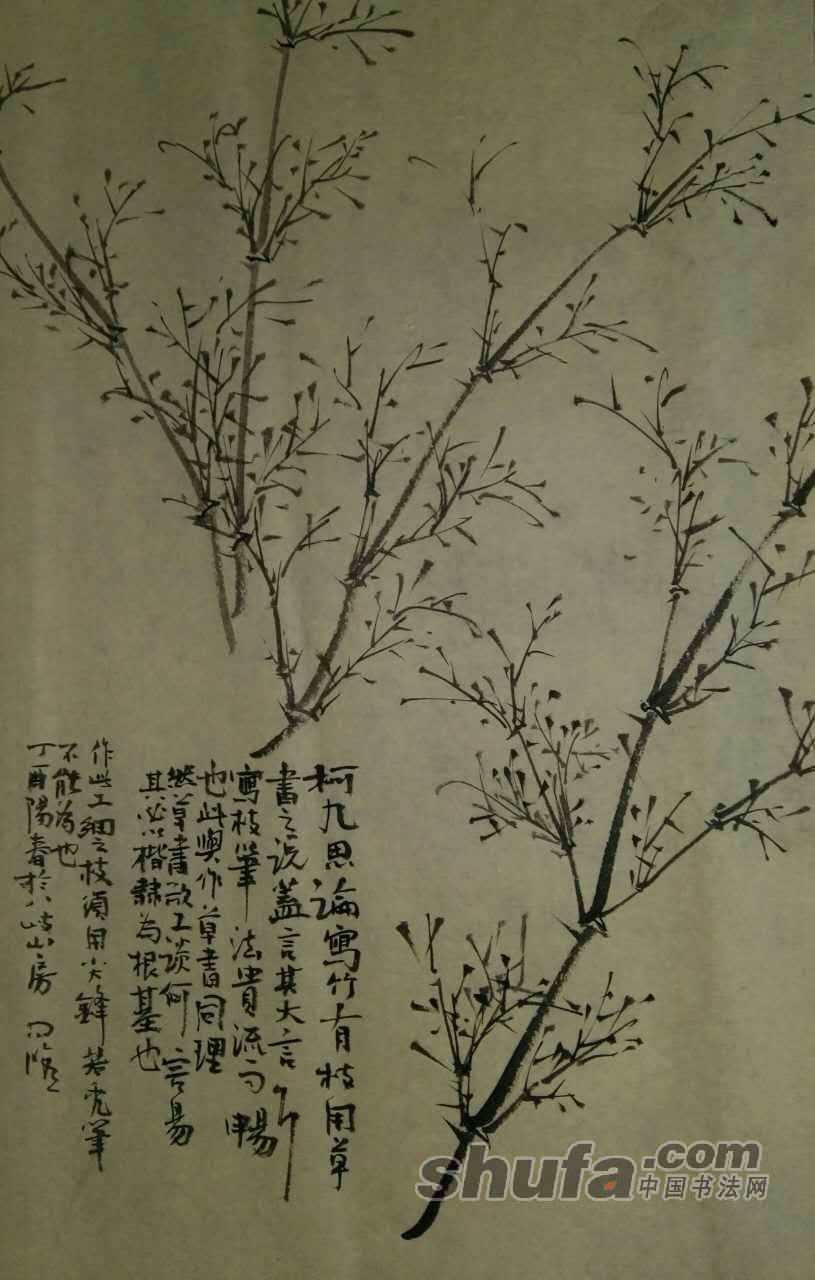 柯九思論寫竹有枝用草
書之说蓋言其大言
寫枝筆法貴流而暢
也此與作草書同理
然草書欲工談何容易
其必以楷隸為根基也
作此工細之枝須用尖鋒若禿筆
不能為也
丁酉陽春於八岐山房
shufa.com
中国书法网